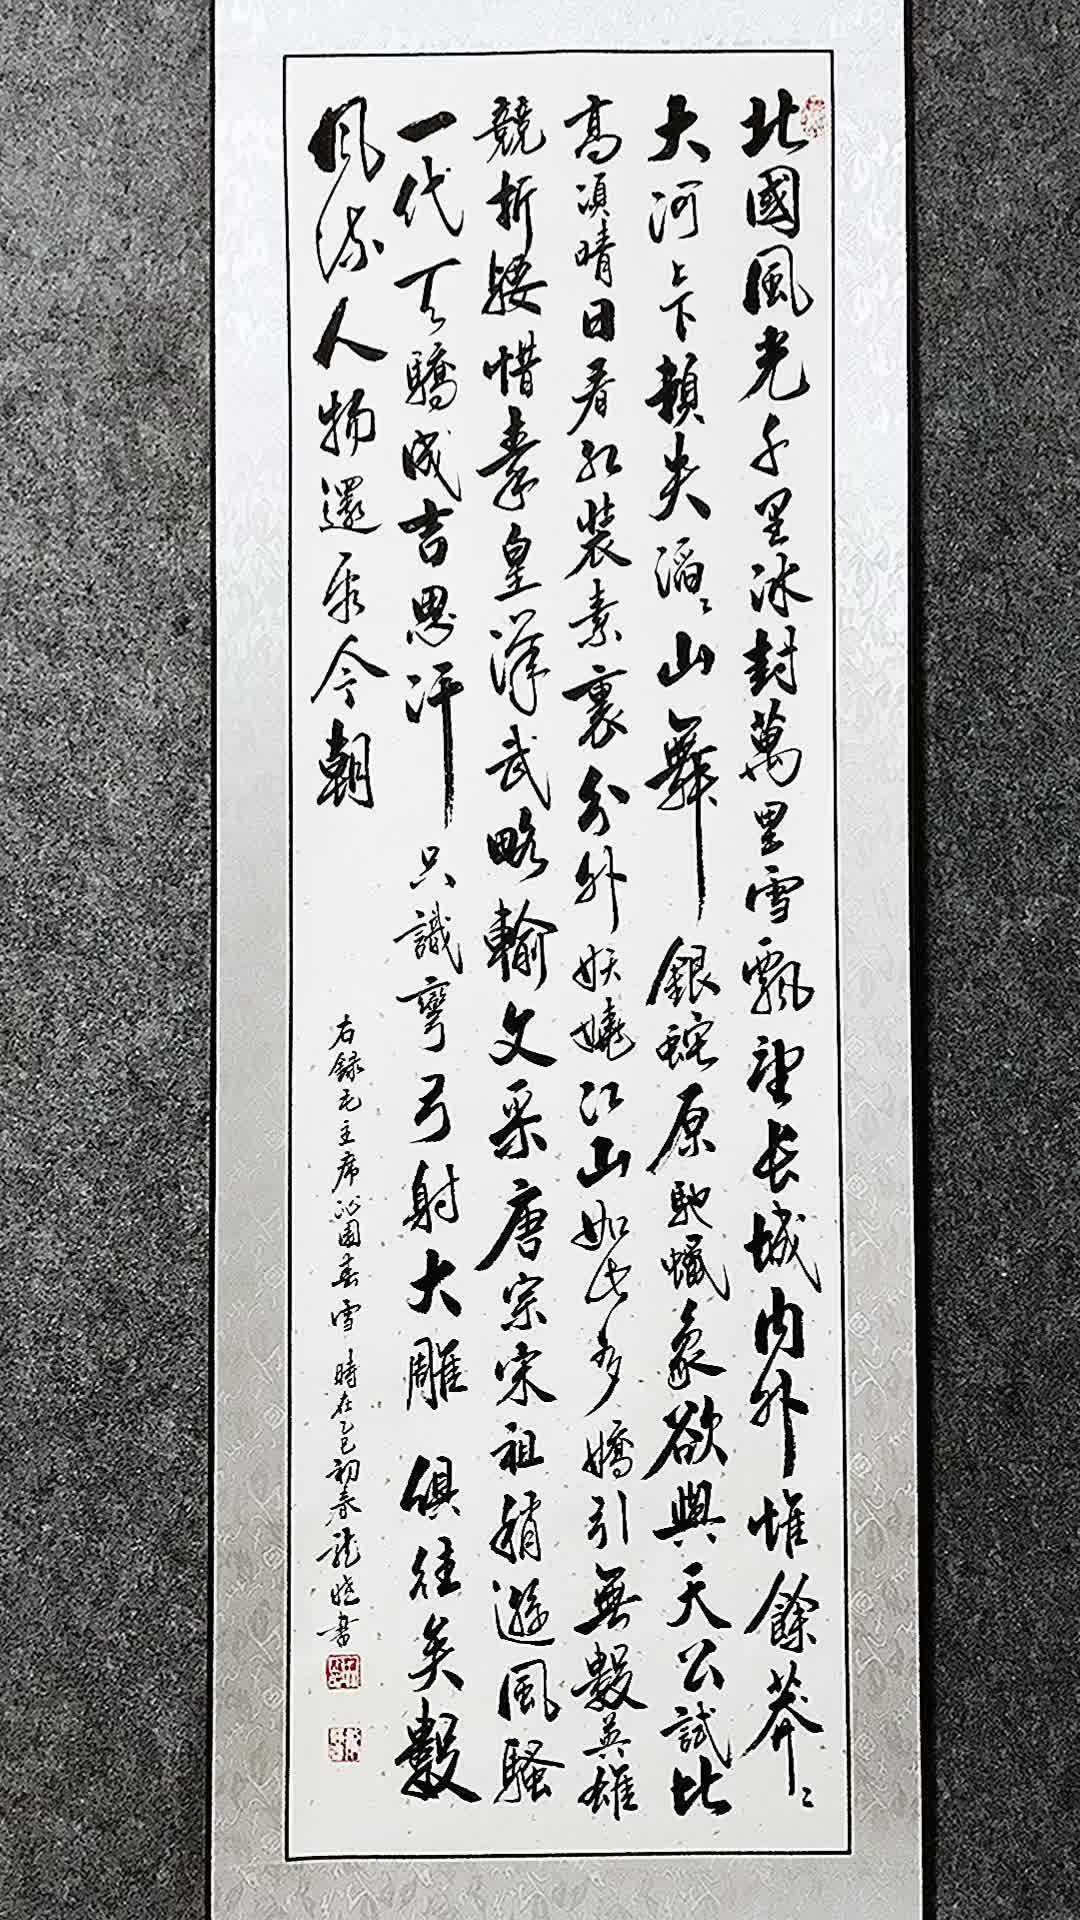 北國風光千里冰封萬里雪飄望長城内外惟餘莽〻
大河上下頓失滔〻山舞銀蛇原馳蠟象欲與天公試比
高須晴日看紅裝素裹分外妖嬈江山如此多嬌引無數英雄
競折腰惜秦皇漢武略輸文采唐宗宋祖稍遜風騷
一代天驕成吉思汗只識彎弓射大雕俱往矣數
風流人物還看今朝
右録毛主席沁園春雪時在乙巳初春龍曉書